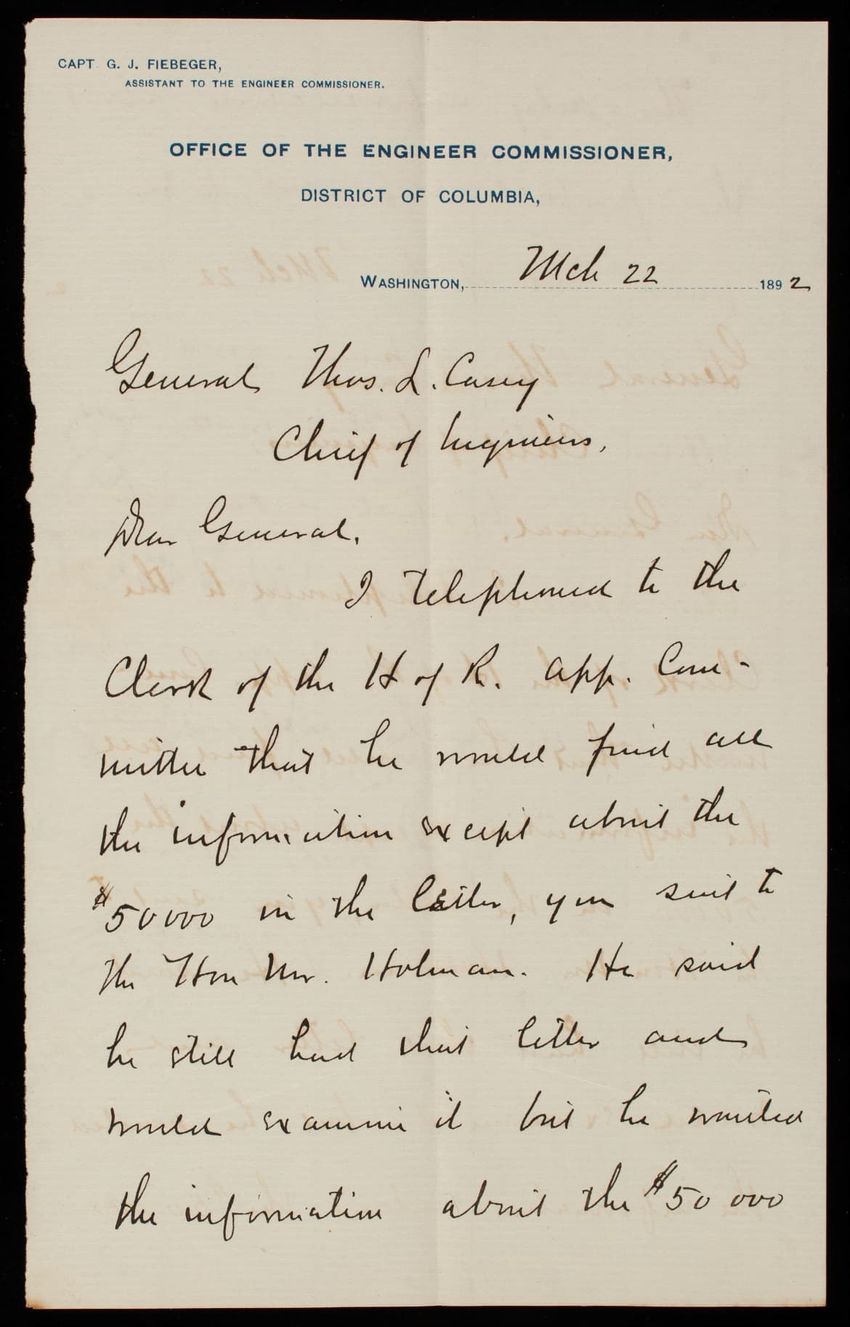 CAPT. G. J. FIEBEGER,
ASSISTANT TO THE ENGINEER COMMISSIONER.
OFFICE OF THE ENGINEER COMMISSIONER,
DISTRICT OF COLUMBIA,
WASHINGTON, Mch 22 1892
General Thos. L. Casey
Chief of Engineers,
Dear General,
I telephoned to the
Clerk of the H of R. App. Com-
mittee that he would find all
the information except about the
$50000 in the letter, you sent to
the Hon Mr. Holman. He said
he still had that letter and
would examine it but he wanted
the information about the $50 000